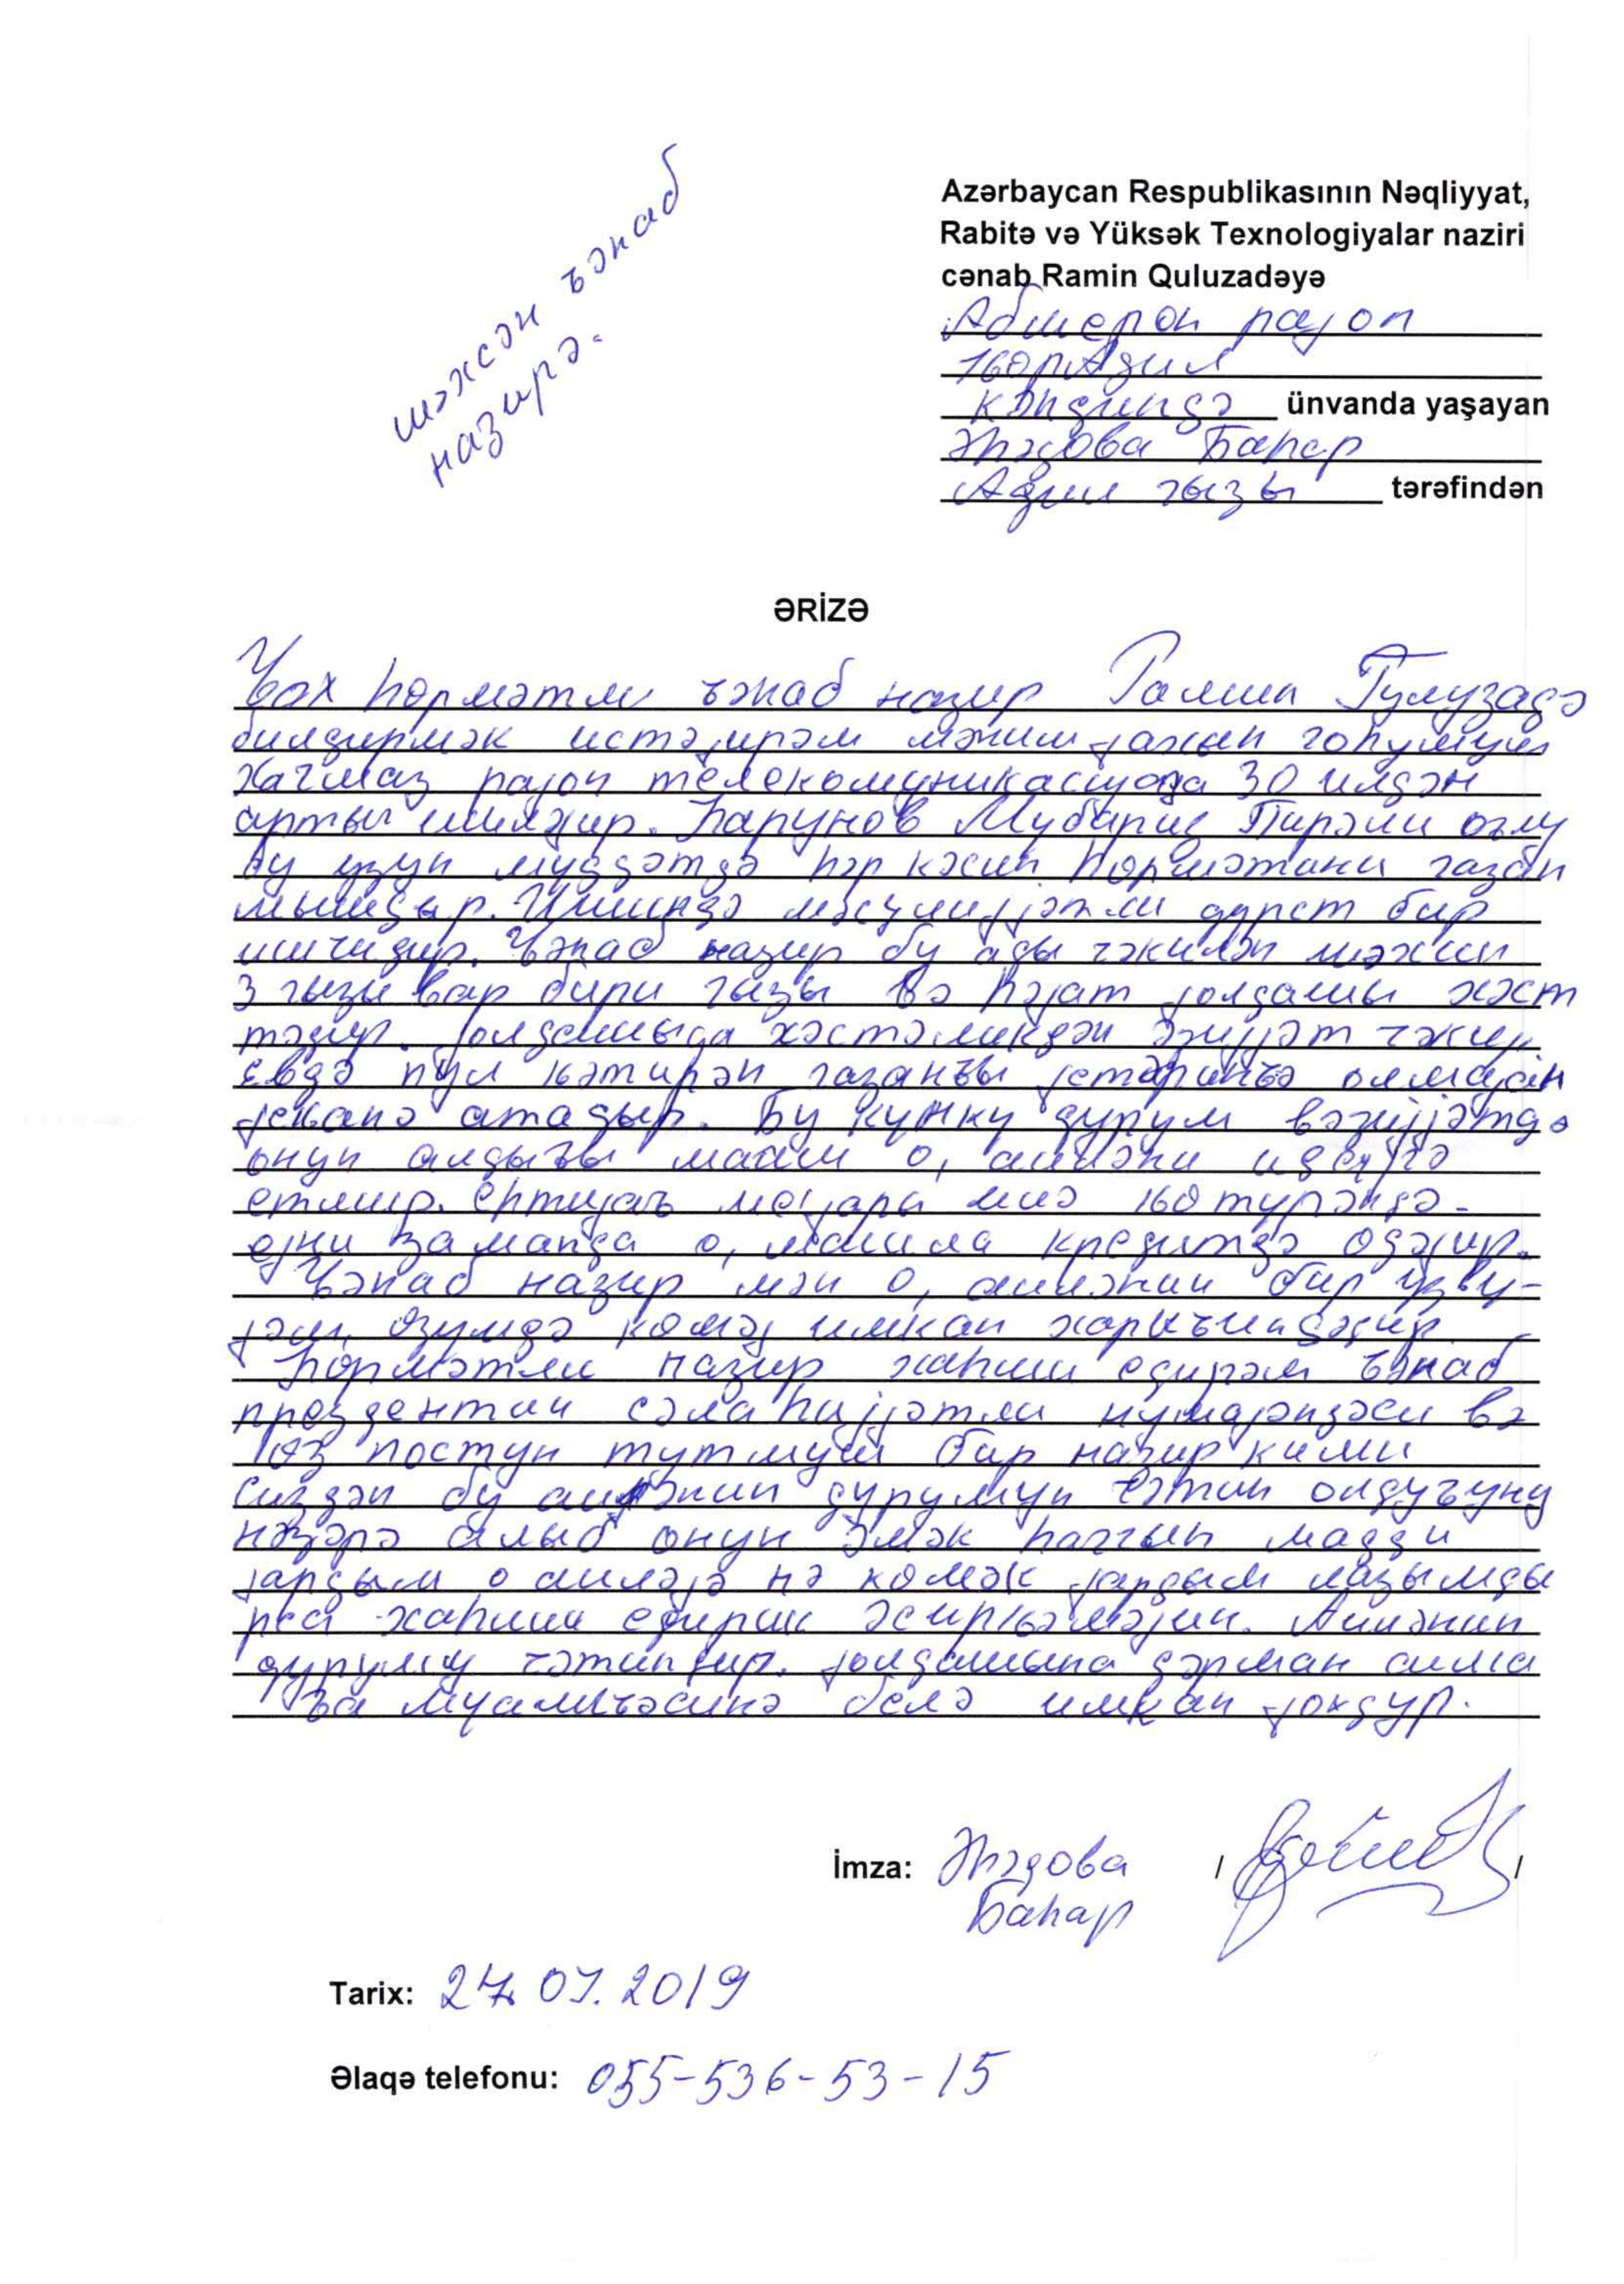 шәхсән ъәнаб
назирә.
Azərbaycan Respublikasının Nəqliyyat,
Rabitə və Yüksək Texnologiyalar naziri
cənab Ramin Quluzadəyə
Абшерон рајон
кәндиндә ünvanda yaşayan
Әһәдова Баһар
Адил гызы tərəfindən
ƏRİZƏ
Чох һөрмәтли ъәнаб назир Рамин Гулузадә
билдирмәк истәјирәм мәним јахын гоһумум
Хачмаз рајон телекомуникасијада 30 илдән
артыг ишләјир. Һарунов Мубариз Пирәли оғлу
бу узун муддәтдә һәр кәсин һөрмәтини газан
мышдыр. Ишиндә мәсулијјәтли дүрүст бир
ишчидир. Ъәнаб назир бу ады чәкилән шәхсин
3 гызы вар бири гызы вә һәјат јолдашы хәст
тәдир. Јолдашыда хәстәликдән әзијјәт чәкир
Евдә пул кәтирән газанъы
јеканә атадыр. Бу кунку дурум вәзијјәтдә
онун алдыъы мааш о, аиләни идејә
етмир. 160
ејни заманда о, кредитдә өдәјир.
Ъәнаб назир мән о, аиләнин бир узву-
јәм. Өзумдә көмәј имкан хариъиндәдир
Һөрмәтли назир хаһиш едирәм ъәнаб
президентин сәлаһијјәтли нумајәндәси вә
постун тутмуш бир назир кими
Сиздән бу аиләнин дурумун чәтин олдуъуну
нәзәрә алыб онун әмәк һаггын мадди
јардым о аиләјә нә көмәк јардым лазымды
рса хаһиш едирәм әсиркәмәјин. Аиләнин
дуруму чәтиндир. Јолдашына дәрман алма
ъа муалиъәсинә белә имкан јохдур.
İmza: Әһәдова / /
Баһар
Tarix: 27.07.2019
Əlaqə telefonu: 055-536-53-15